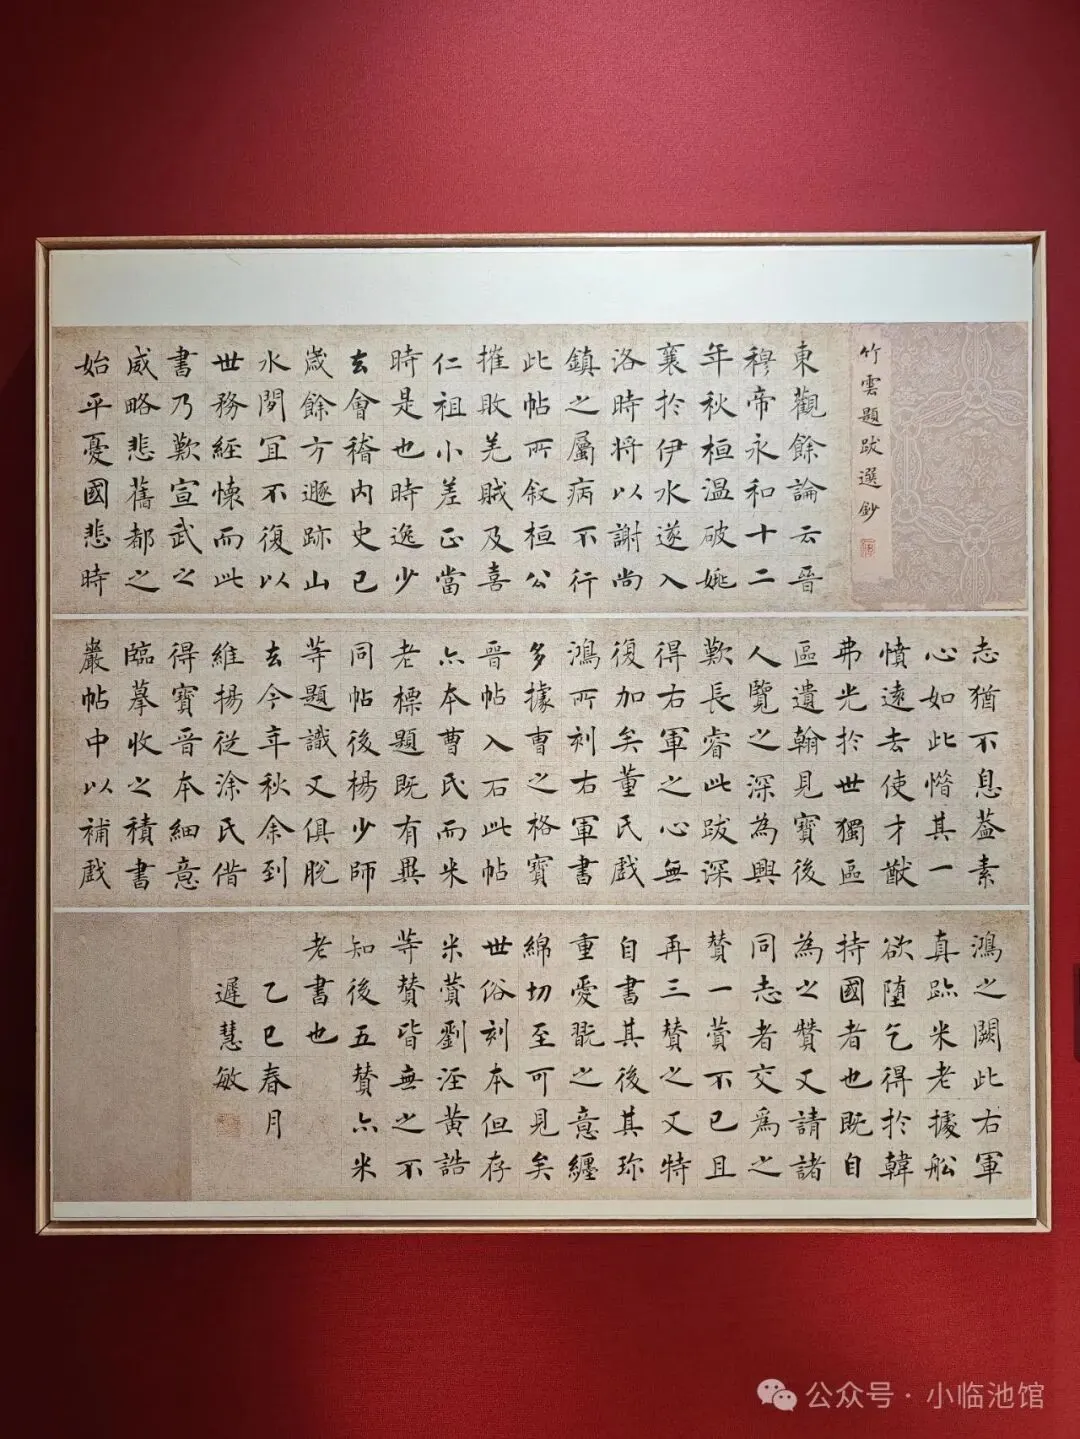 竹雲題跋選鈔
東觀餘論云晉
穆帝永和十二
年秋桓温破姚
襄於伊水遂入
洛時将以謝尚
鎮之属病不行
此帖所叙桓公
摧敗羌賊及喜
仁祖小差正當
時是也時逸少
去會稽内史已
歲餘方遯跡山
水間宜不復以
世務經懐而此
書乃歎宣武之
威略悲舊都之
始平憂國悲時
志猶不息蓋素
心如此惜其一
憤遠去使才猷
弗光於世獨區
區遺翰見寶後
人覽之深為興
歎長睿此跋深
得右軍之心無
復加矣董氏戲
鴻所刻右軍書
多據曹之格寶
晉帖入石此帖
亦本曹氏而米
老標題既有異
同帖後楊少師
等題識又俱脫
去今年秋余到
維揚從涂氏借
得寶晉本細意
臨摹收之積書
巖帖中以補戲
鴻之闕此右軍
真跡米老據舩
欲堕乞得於韓
持國者也既自
為之贊又請諸
同志者交爲之
贊一賛不已且
再三賛之又特
自書其後其珎
重愛翫之意纏
綿切至可見矣
世俗刻本但存
米賛劉涇黄誥
等賛皆無之不
知後五賛亦米
老書也
乙巳春月
遲慧敏
公众号·小临池馆